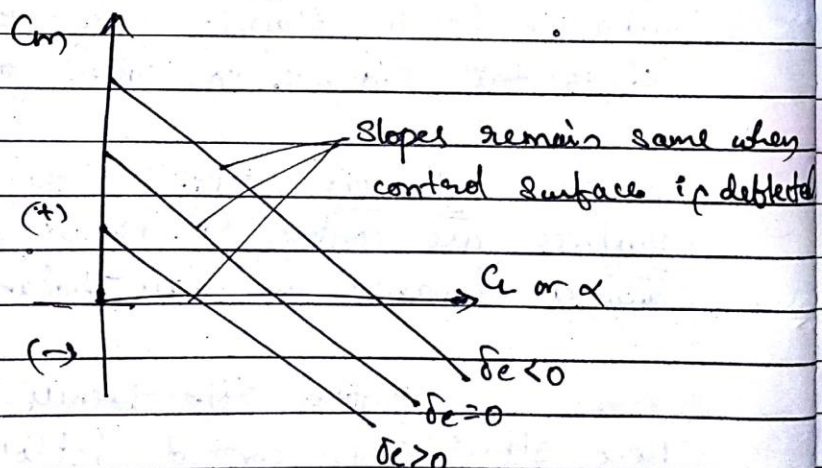 Cm
Slopes remain same when
control surface is deflected
(+)
CL or α
(-)
δe<0
δe=0
δe>0